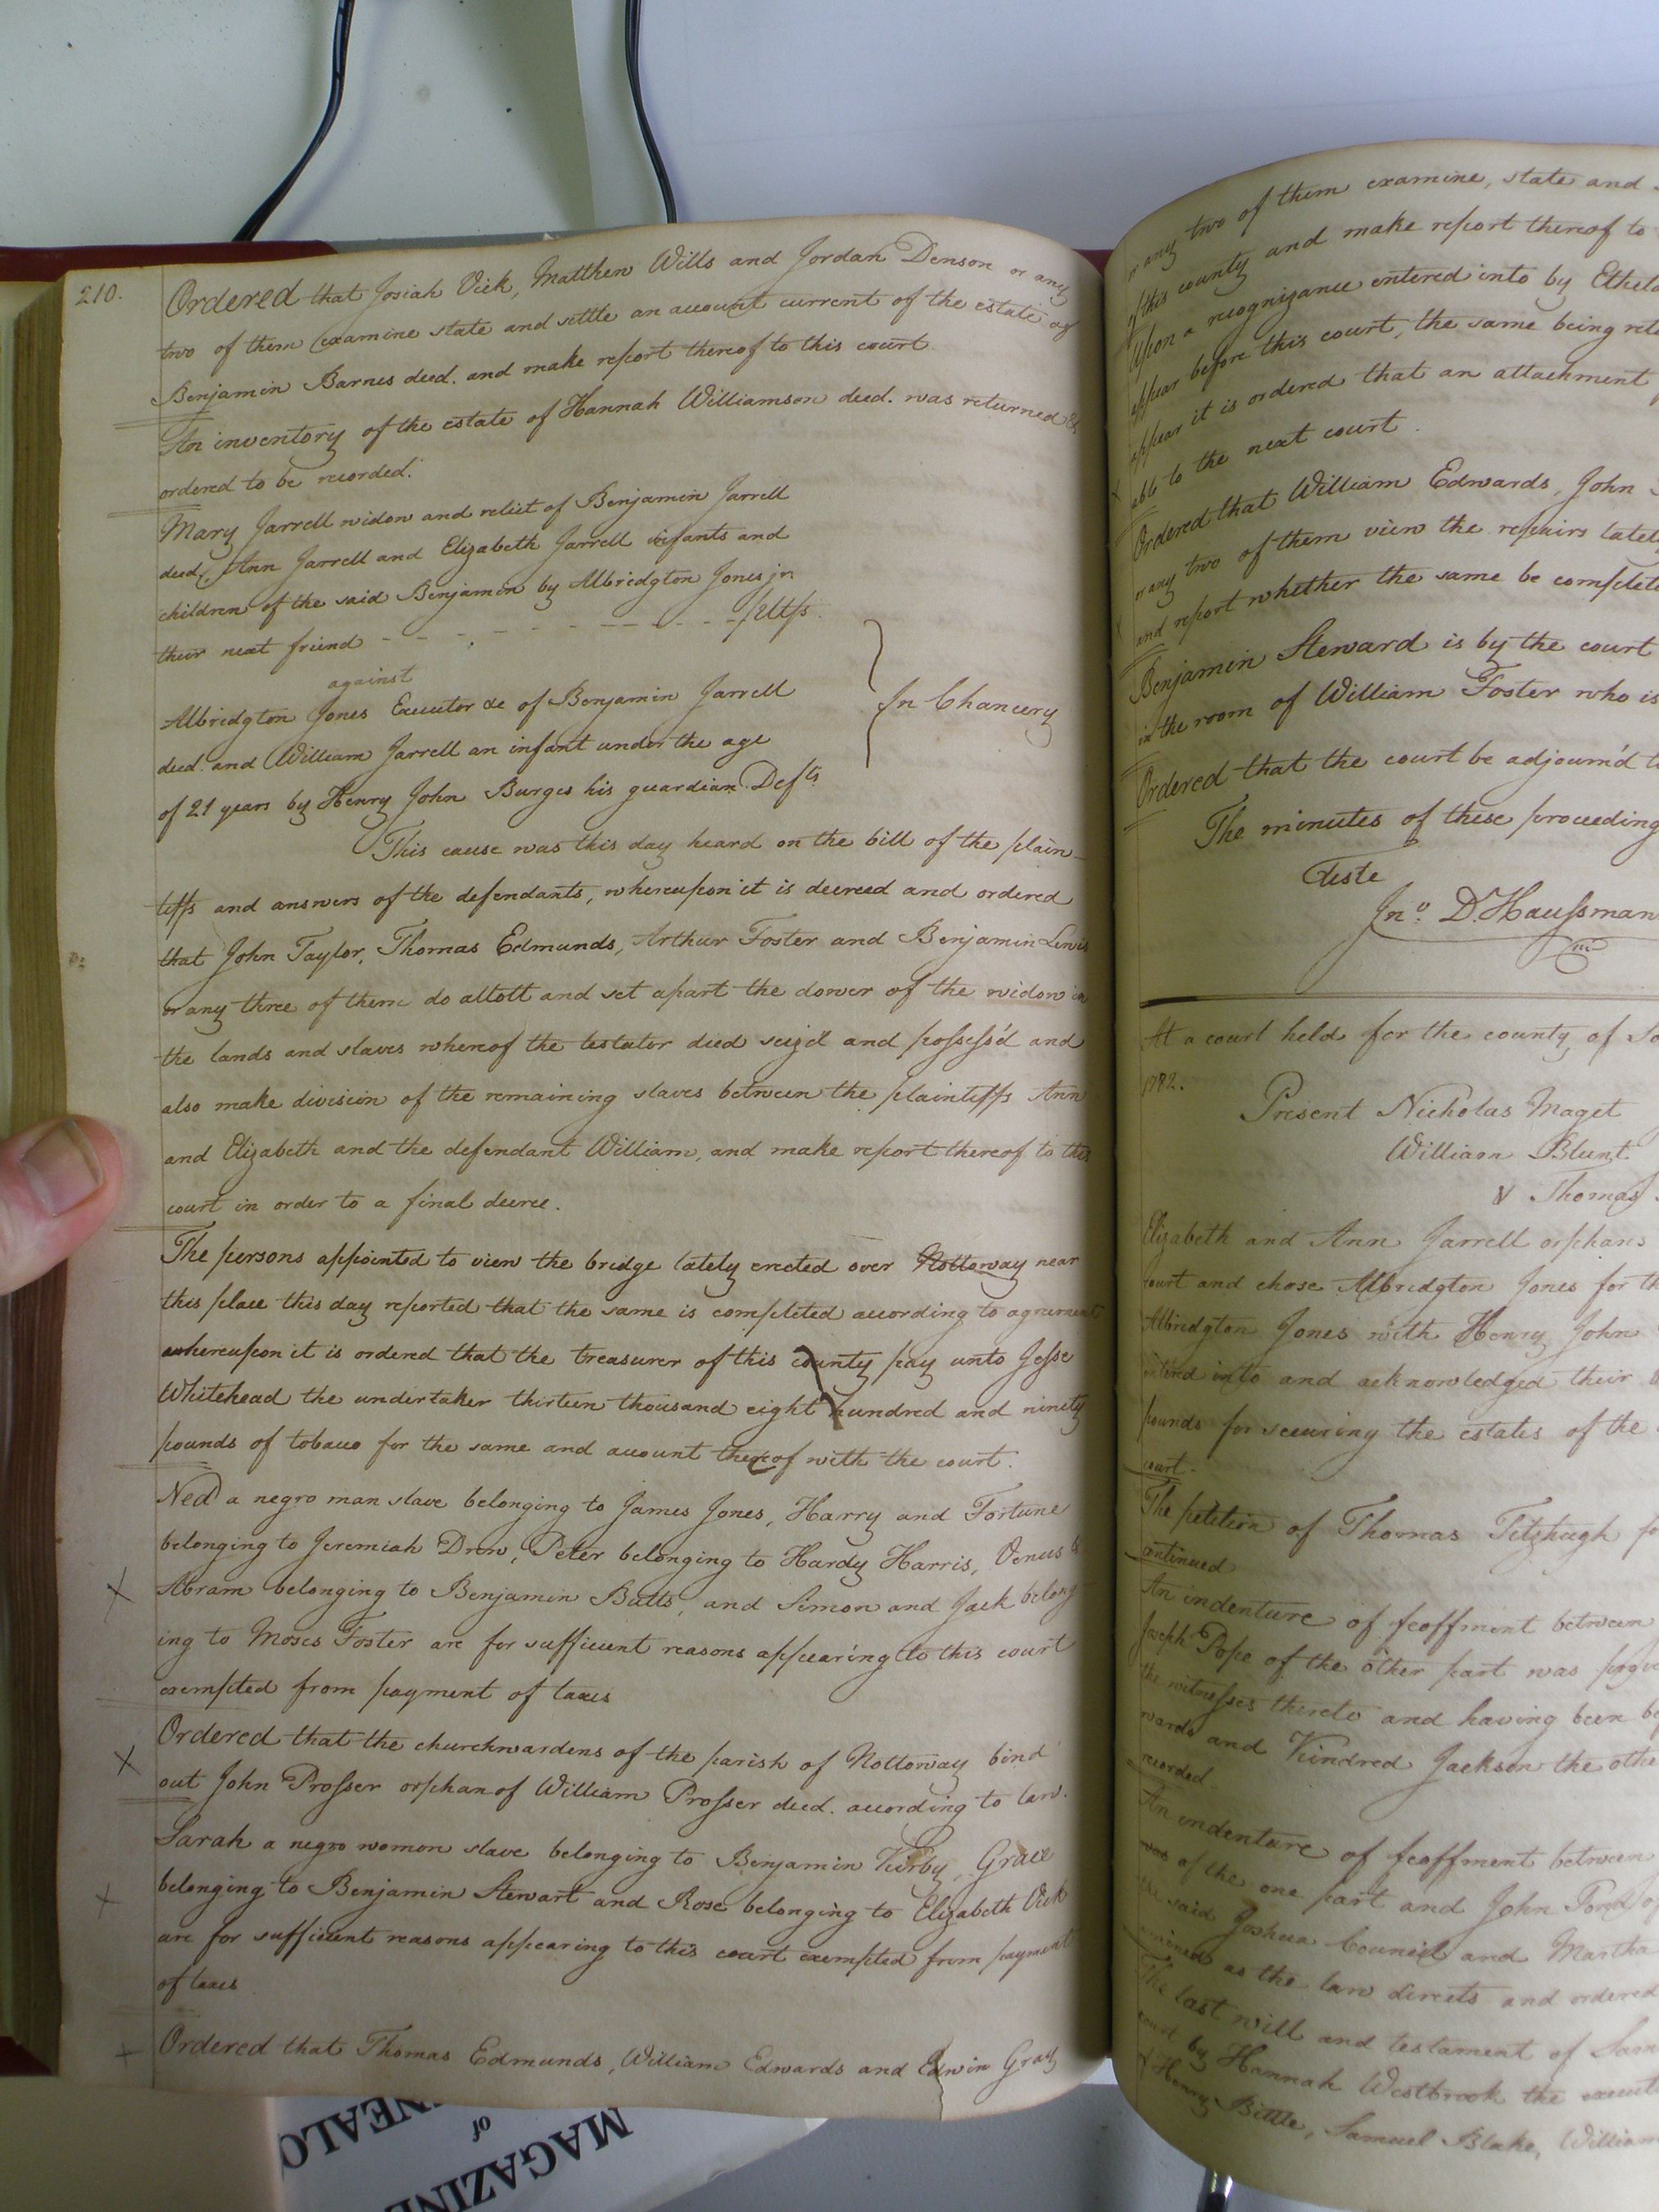 210.
Ordered that Josiah Vick, Matthew Wills and Jordan Denson or any
two of them examine state and settle an account current of the estate of
Benjamin Barnes deed. and make report thereof to this court.
An inventory of the estate of Hannah Williamson deed. was returned &
ordered to be recorded.
Mary Jarrell widow and relict of Benjamin Jarrell
deed, Ann Jarrell and Elizabeth Jarrell infants and
children of the said Benjamin by Albridgton Jones jr.
their next friend - - - - - - - - - - - pltfs.
against
Albridgton Jones Executor &c of Benjamin Jarrell
deed. and William Jarrell an infant under the age
of 21 years by Henry John Burges his guardian Defts.
In Chancery
This cause was this day heard on the bill of the plain-
tiffs and answers of the defendants, whereupon it is decreed and ordered
that John Taylor, Thomas Edmunds, Arthur Foster and Benjamin Lewis
or any three of them do allott and set apart the dower of the widow in
the lands and slaves whereof the testator died seiz'd and possess'd and
also make division of the remaining slaves between the plaintiffs Ann
and Elizabeth and the defendant William, and make report thereof to this
court in order to a final decree.
The persons appointed to view the bridge lately erected over Nottoway near
this place this day reported that the same is completed according to agreement
whereupon it is ordered that the treasurer of this county pay unto Jesse
Whitehead the undertaker thirteen thousand eight hundred and ninety
pounds of tobacco for the same and account thereof with the court.
Ned a negro man slave belonging to James Jones, Harry and Fortune
belonging to Jeremiah Drew, Peter belonging to Hardy Harris, Venus &
Abram belonging to Benjamin Butts, and Simon and Jack belong
ing to Moses Foster are for sufficient reasons appearing to this court
exempted from payment of taxes
Ordered that the churchwardens of the parish of Nottoway bind
out John Prosser orphan of William Prosser deed. according to law.
Sarah a negro woman slave belonging to Benjamin Kirby, Grace
belonging to Benjamin Stewart and Rose belonging to Elizabeth Vick
are for sufficient reasons appearing to this court exempted from payment
of taxes
Ordered that Thomas Edmunds, William Edwards and Edwin Gray
or any two of them examine, state and
of this county and make report thereof to
Upon a recognizance entered into by
appear before this court, the same being
appear it is ordered that an attachment
able to the next court.
Ordered that William Edwards, John
or any two of them view the repairs
and report whether the same be
Benjamin Steward is by the court
in the room of William Foster who is
Ordered that the court be adjourn'd
The minutes of these proceeding
Teste
Jno. D. Haussman
At a court held for the county of
1782.
Present Nicholas Maget
William Blunt
& Thomas
Elizabeth and Ann Jarrell orphans
court and chose Albridgton Jones for
Albridgton Jones with Henry John
entered into and acknowledged their
pounds for securing the estates of the
court.
The petition of Thomas Fitzhugh
continued
An indenture of feoffment between
Joseph Pope of the other part was
the witnesses thereto and having been
wards and Kindred Jackson the
recorded.
An indenture of feoffment between
of the one part and John Pond of
the said Joshua Council and Martha
as the law directs and ordered
The last will and testament of
court by Hannah Westbrook the
& Henry Bittle, Samuel Blake, William
MAGAZINE
of